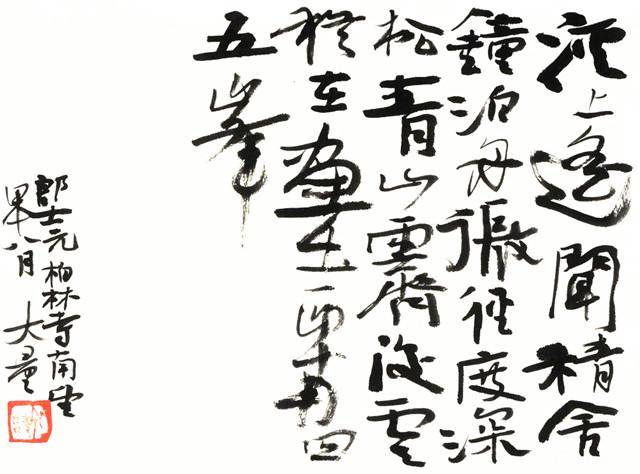 溪上遙聞精舍
鐘泊舟微徑度深
松青山霽後雲
猶在畫出西南四
五峯
郎士元柏林寺南望
八月 大量